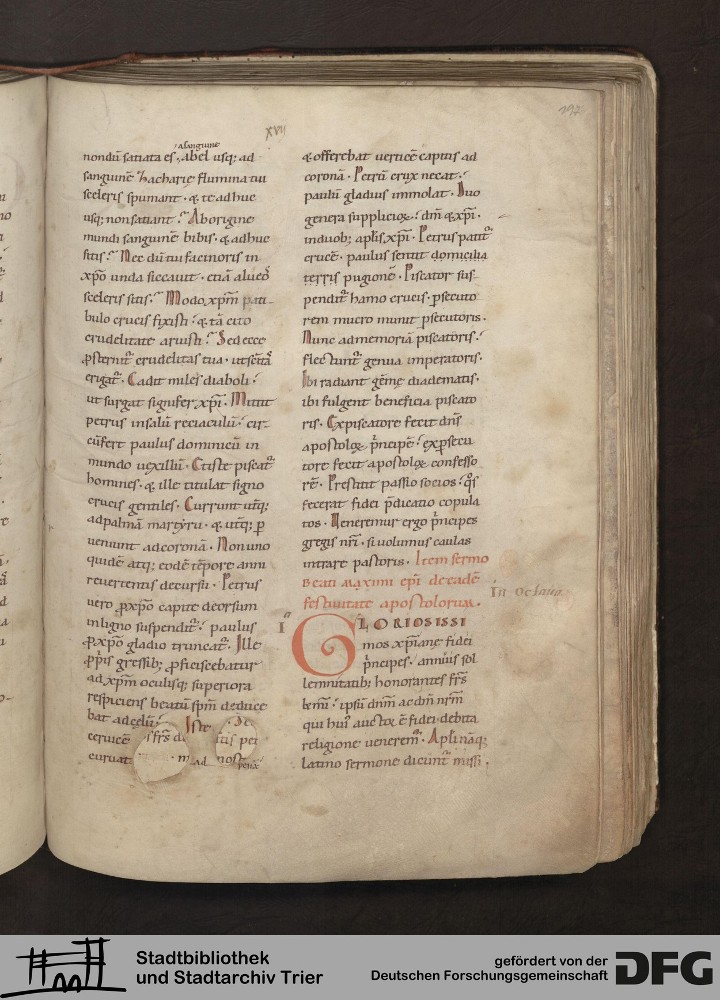 XVII
197
a sanguine
nondū satiata es, abel usq; ad
sanguinē Zacharię flumina tui
sceleris spumant · & te adhuc
usq; non satiant? Aborigine
mundi sanguinē bibis · & adhuc
sitis? Nec dū tui facinoris in
xp̄o unda siccauit · etiā alueū
sceleris sitis? Modo xp̄m pati-
bulo crucis fixisti? & tā cito
crudelitate aruisti? Sed ecce
ꝓsternit᷑ crudelitas tua · ut sc̄ītā
erigat᷑. Cadit miles diaboli ·
ut surgat signifer xp̄i. Mittit
petrus in salū reciaculū · cir-
cūfert paulus dominicū in
mundo uexillū. Ciste piscat᷑
homines · & ille titulat signo
crucis gentiles. Currunt utq;
ad palmā martyrū · & utq; ꝑ
ueniunt ad coronā. Non uno
quidē atq; eodē tēpore anni
reuertentis decursu. Petrus
uero ꝓ xp̄o capite deorsum
in ligno suspendit᷑. paulus
ꝓ xp̄o gladio truncat᷑. Ille
ꝓpriis gressib; ꝓficiscebatur
ad xp̄m oculisq; superiora
respiciens beatū sp̄m deduce
bat ad cęlū. Iste
ceruicē
curuat
& offerebat uerticē capitis ad
coronā. Petrū crux necat.
paulū gladius immolat. Duo
genera suppliciorum · dn̄i & xp̄i ·
in duob; apl̄is xp̄i. Petrus patit᷑
crucē · paulus sentit domicilia
terris pugionē. Piscator sus-
pendit᷑ hamo crucis · ꝑsecuto
rem mucro munit ꝑsecutoris.
Nunc ad memoriā piscatoris ·
flectunt᷑ genua imperatoris.
Ibi radiant gēmę diadematis ·
ibi fulgent beneficia piscato
ris. Ex piscatore fecit dn̄s
apostolorum principē · ex ꝑsecu
tore fecit apostolorum confesso
rē. Prestitit passio socios · qͦs
fecerat fidei p̄dicatio copula
tos. Ueneremur ergo principes
gregis nr̄i · si uolumus caulas
intrare pastoris. Item sermo
Beati Maximi ep̄i de eadē
festiuitate apostolorum.
In octaua
I
GLORIOSISSI
mos xp̄iane fidei
principes · annuis sol
lemnitatib; honorantes fr̄s
km̄i · ipsū dnm̄ ac dn̄m nr̄m
qui hui᷒ auctor ē fidei debita
religione uenerem᷑. Apl̄i nāq;
latino sermone dicunt᷑ missi ·
Stadtbibliothek
und Stadtarchiv Trier
gefördert von der
Deutschen Forschungsgemeinschaft
DFG